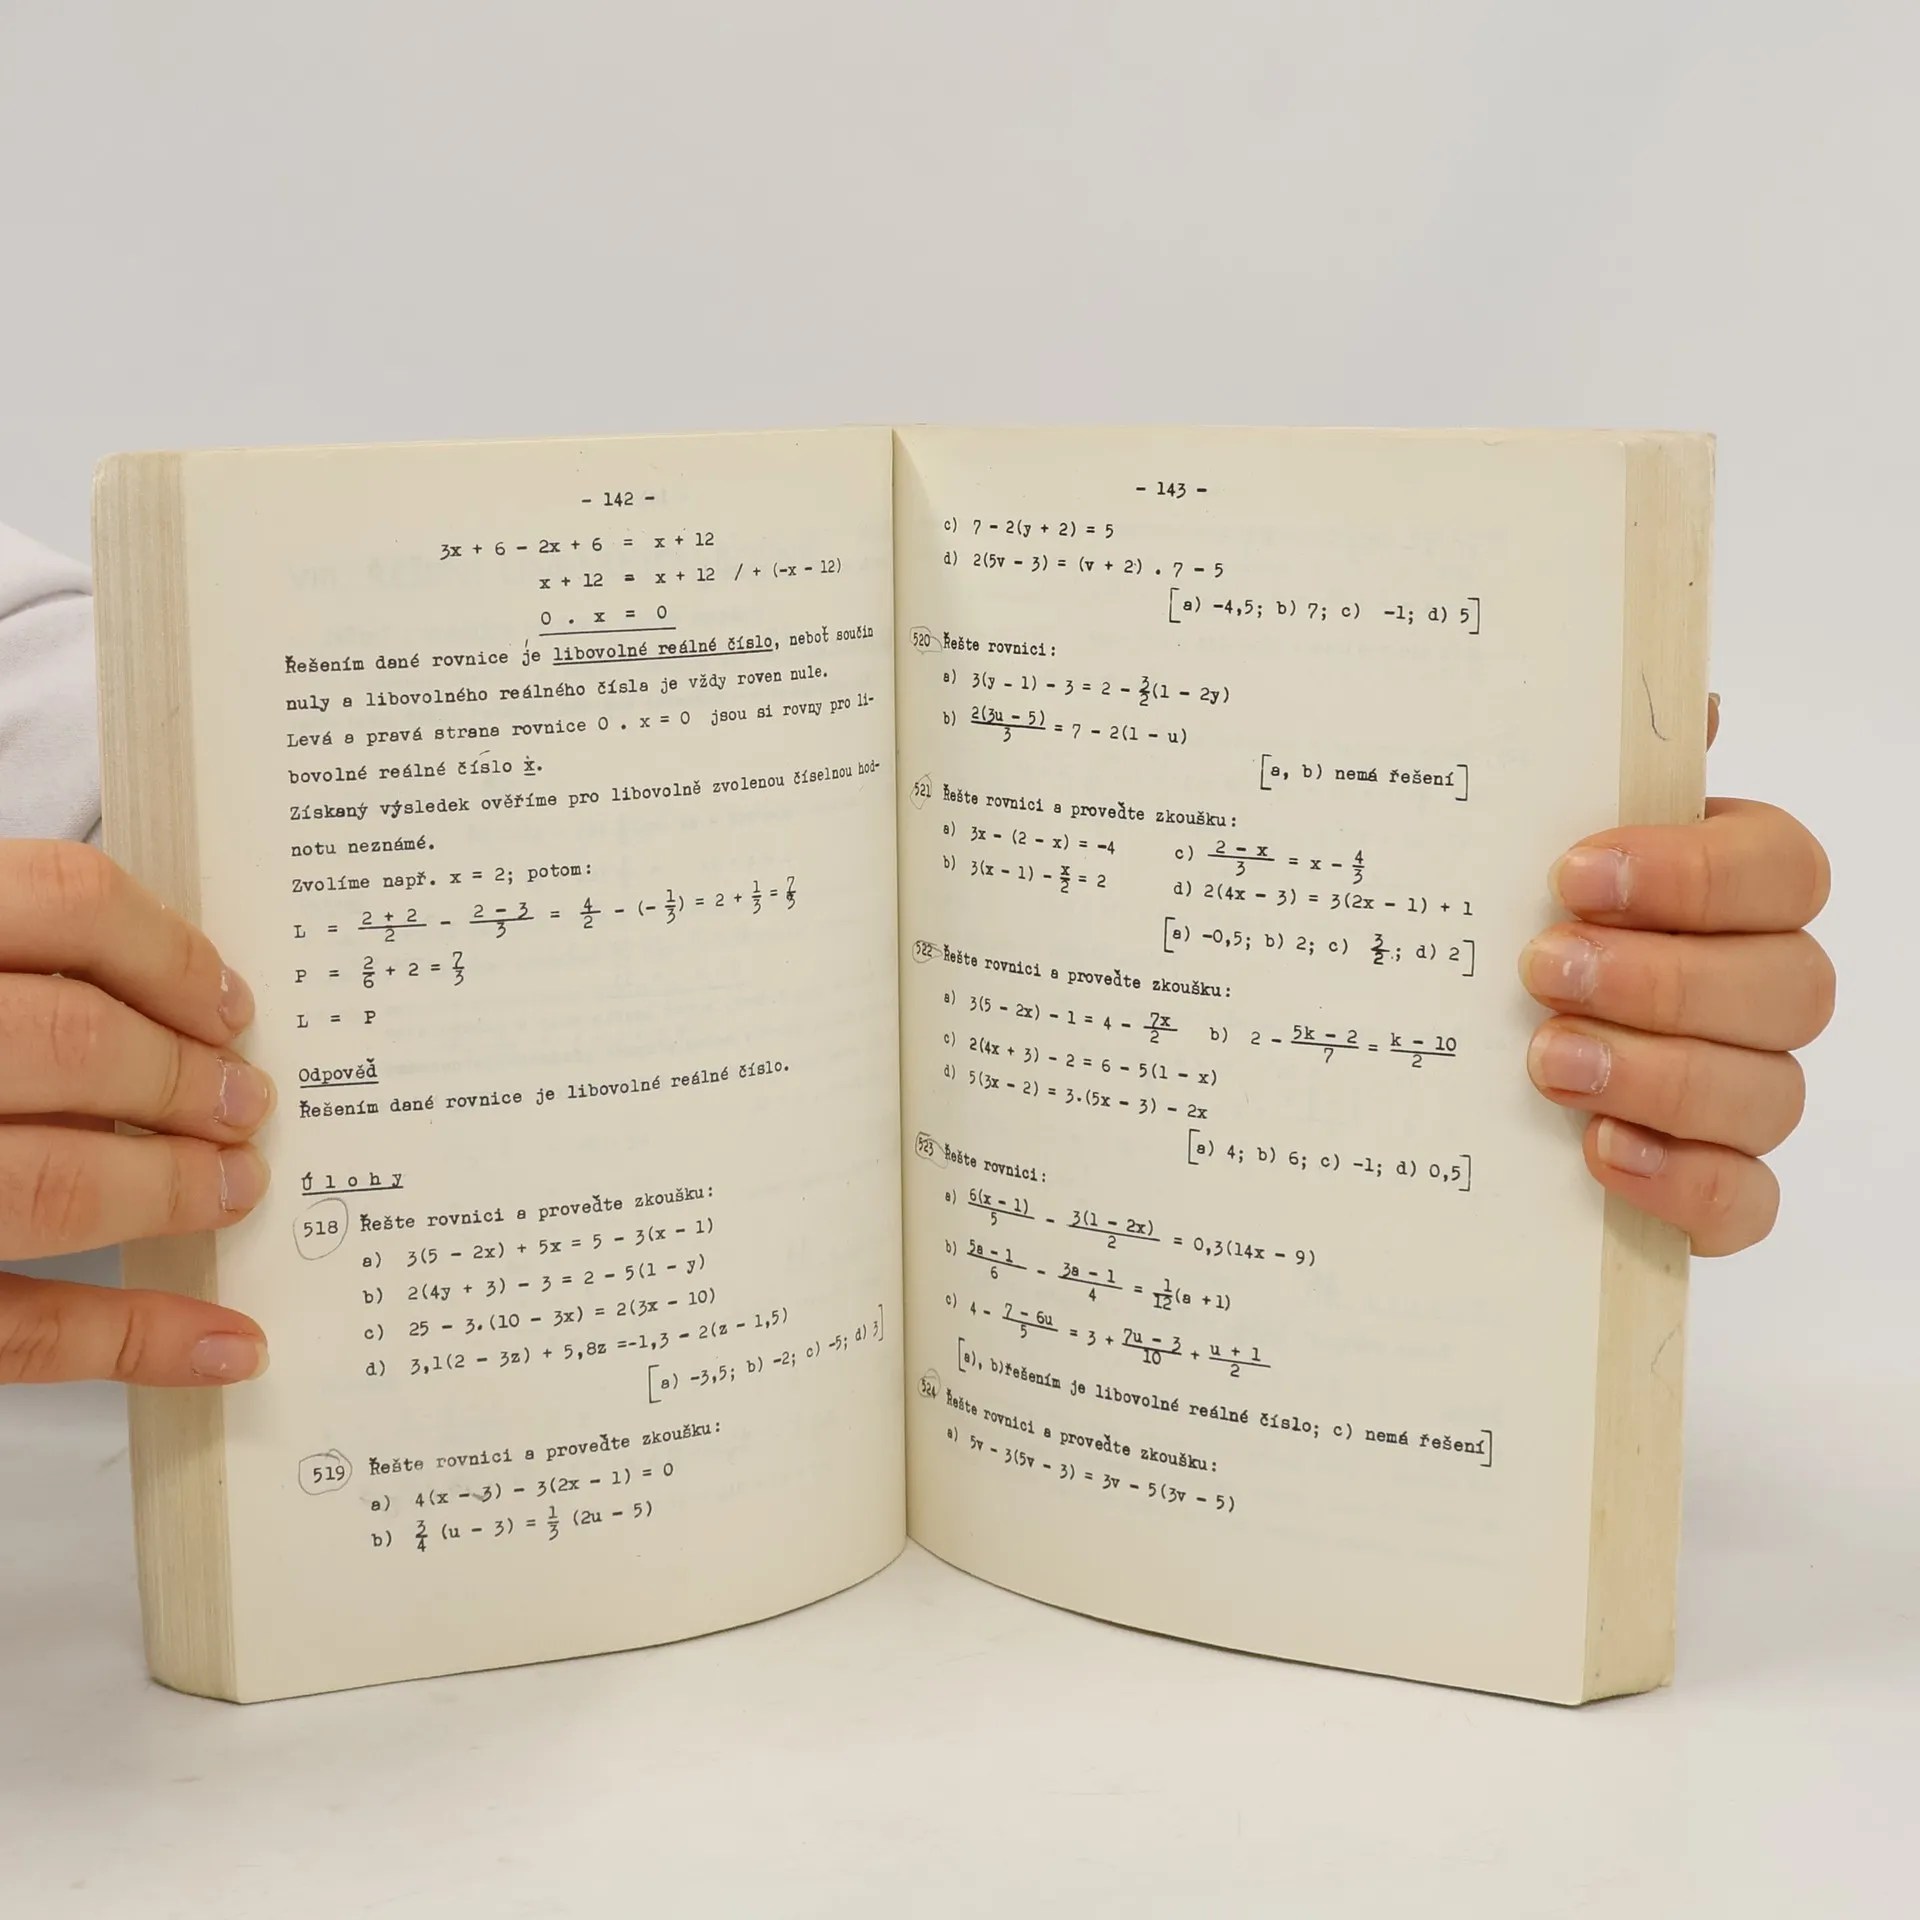 - 142 -
3x + 6 - 2x + 6 = x + 12
x + 12 = x + 12 / + (-x - 12)
0 . x = 0
Řešením dané rovnice je libovolné reálné číslo, neboť součin
nuly a libovolného reálného čísla je vždy roven nule.
Levá a pravá strana rovnice 0 . x = 0 jsou si rovny pro li-
bovolné reálné číslo x.
Získaný výsledek ověříme pro libovolně zvolenou číselnou hod-
notu neznámé.
Zvolíme např. x = 2; potom:
L = (2 + 2)/2 - (2 - 3)/3 = 4/2 - (- 1/3) = 2 + 1/3 = 7/3
P = 2/6 + 2 = 7/3
L = P
Odpověď
Řešením dané rovnice je libovolné reálné číslo.
Úlohy
518 Řešte rovnici a proveďte zkoušku:
a) 3(5 - 2x) + 5x = 5 - 3(x - 1)
b) 2(4y + 3) - 3 = 2 - 5(1 - y)
c) 25 - 3.(10 - 3x) = 2(3x - 10)
d) 3,1(2 - 3z) + 5,8z =-1,3 - 2(z - 1,5)
[a) -3,5; b) -2; c) -5; d) 3]
519 Řešte rovnici a proveďte zkoušku:
a) 4(x - 3) - 3(2x - 1) = 0
b) 3/4 (u - 3) = 1/3 (2u - 5)
- 143 -
c) 7 - 2(y + 2) = 5
d) 2(5v - 3) = (v + 2) . 7 - 5
[a) -4,5; b) 7; c) -1; d) 5]
520 Řešte rovnici:
a) 3(y - 1) - 3 = 2 - 3/2(1 - 2y)
b) 2(3u - 5)/3 = 7 - 2(1 - u)
[a, b) nemá řešení]
521 Řešte rovnici a proveďte zkoušku:
a) 3x - (2 - x) = -4 c) (2 - x)/3 = x - 4/3
b) 3(x - 1) - x/2 = 2 d) 2(4x - 3) = 3(2x - 1) + 1
[a) -0,5; b) 2; c) 3/2; d) 2]
522 Řešte rovnici a proveďte zkoušku:
a) 3(5 - 2x) - 1 = 4 - 7x/2 b) 2 - (5k - 2)/7 = (k - 10)/2
c) 2(4x + 3) - 2 = 6 - 5(1 - x)
d) 5(3x - 2) = 3.(5x - 3) - 2x
[a) 4; b) 6; c) -1; d) 0,5]
523 Řešte rovnici:
a) 6(x - 1)/5 - 3(1 - 2x)/2 = 0,3(14x - 9)
b) (5a - 1)/6 - (3a - 1)/4 = 1/12(a + 1)
c) 4 - (7 - 6u)/5 = 3 + (7u - 3)/10 + (u + 1)/2
[a), b)řešením je libovolné reálné číslo; c) nemá řešení]
524 Řešte rovnici a proveďte zkoušku:
a) 5v - 3(5v - 3) = 3v - 5(3v - 5)